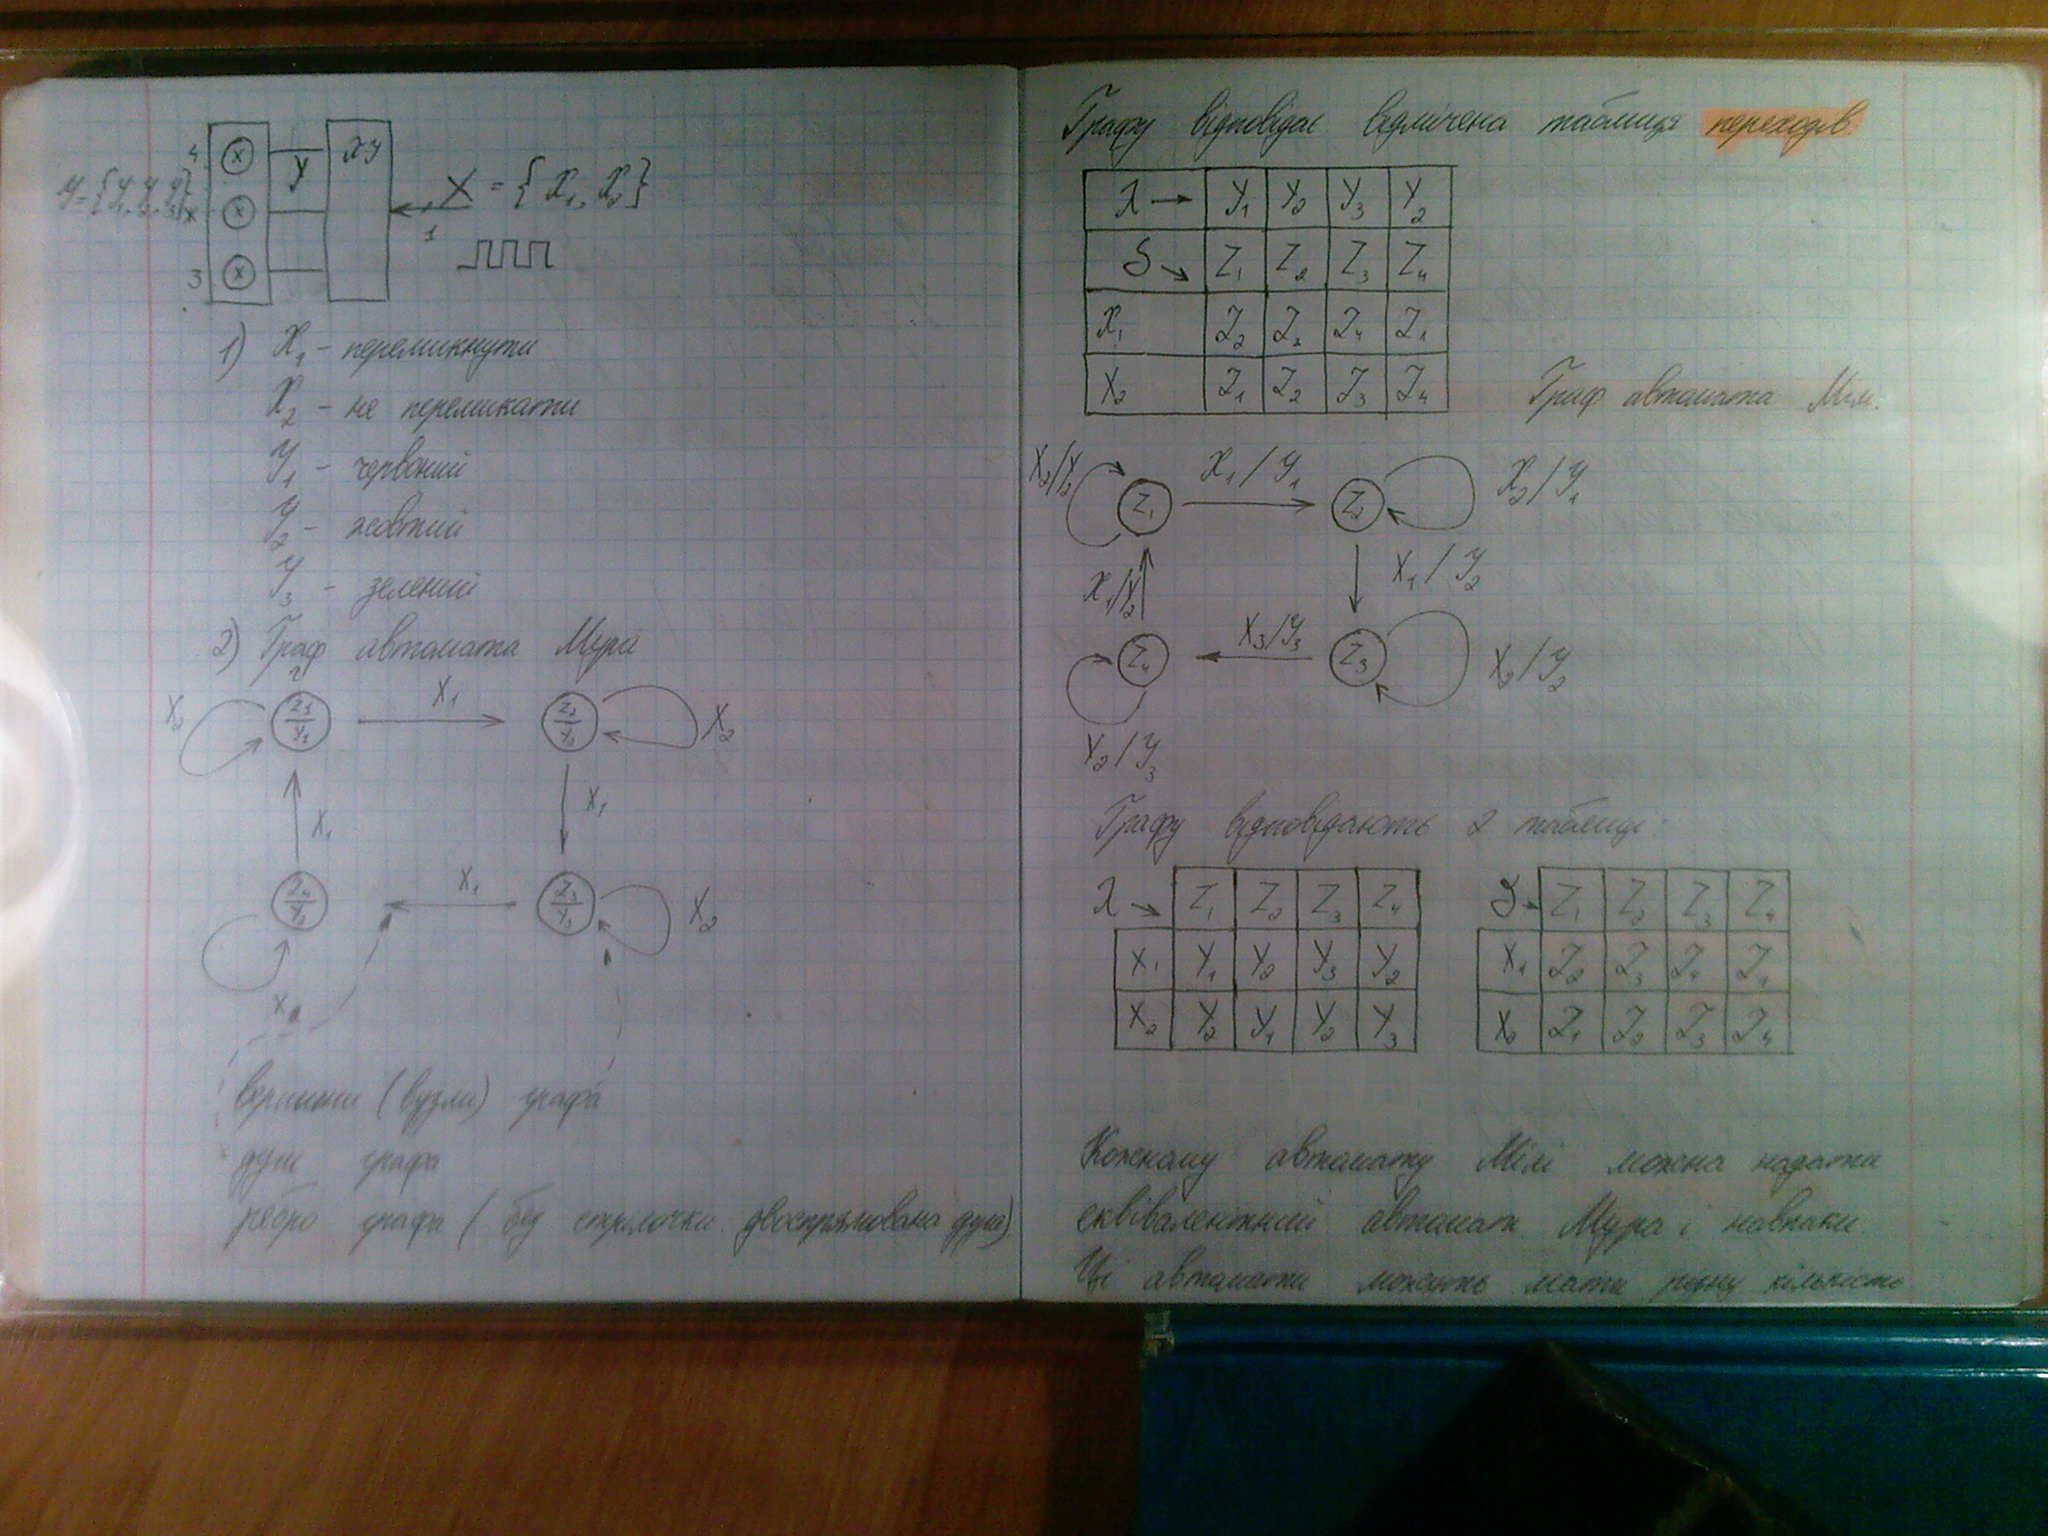 Ч
Ж
З
Y
ХУ
У={У1, У2, У3}
1
X = { X1, X2 }
1) X1 - перемикнути
X2 - не перемикати
У1 - червоний
У2 - жовтий
У3 - зелений
2) Граф автомата Мура
X2 Z1/Y1 X1 Z2/Y2 X2
X1 X1
Z4/Y2 X1 Z3/Y3 X2
X2
вершини (вузли) графа
дуги графа
ребро графа ( без стрілочки двоспрямована дуга)
Графу відповідає відмічена таблиця переходів
λ → Y1 Y2 Y3 Y2
δ ↘ Z1 Z2 Z3 Z4
X1 Z2 Z3 Z4 Z1
X2 Z1 Z2 Z3 Z4
Граф автомата Мілі.
X2/Y2 Z1 X1 / Y1 Z2 X2 / Y1
X1/Y2 X1 / Y2
Z4 X3/Y3 Z3 X2 / Y2
X2 / Y3
Графу відповідають 2 таблиці:
λ → Z1 Z2 Z3 Z4
X1 Y1 Y2 Y3 Y2
X2 Y2 Y1 Y2 Y3
δ → Z1 Z2 Z3 Z4
X1 Z2 Z3 Z4 Z1
X2 Z1 Z2 Z3 Z4
Кожному автомату Мілі можна надати
еквівалентний автомат Мура і навпаки
Ці автомати можуть мати різну кількість